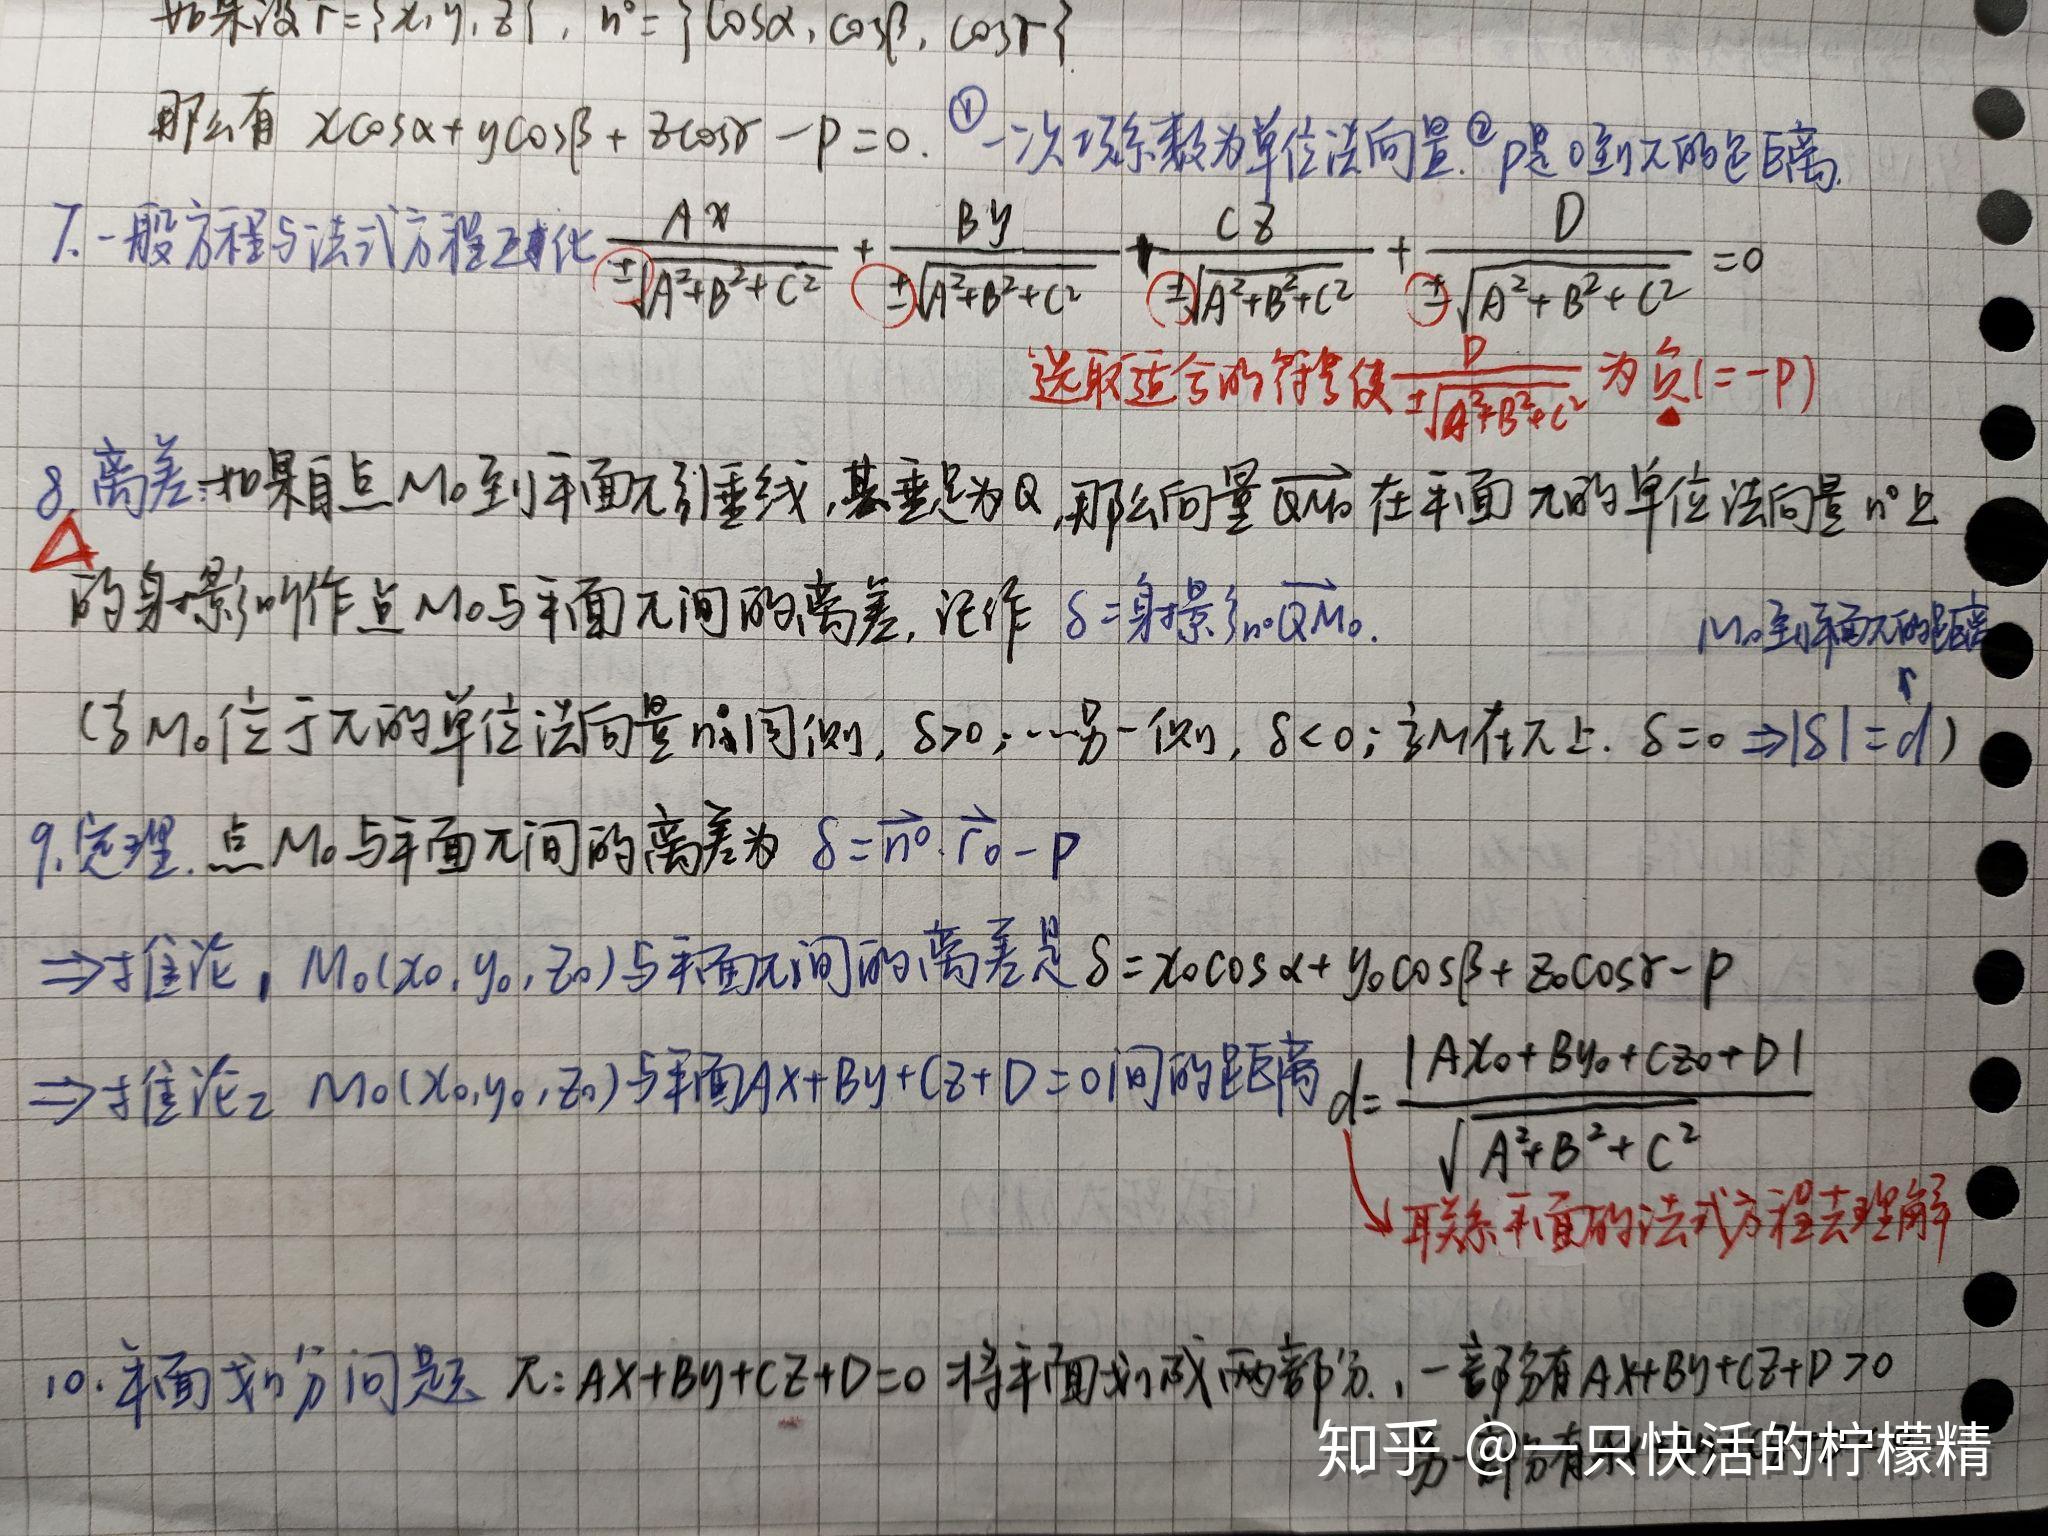 如果设r={x,y,z}, n°={cosα, cosβ, cosγ}
那么有 xcosα+ycosβ+zcosγ-p=0. ①一次项系数为单位法向量.②p是o到π的距离.
7.一般方程与法式方程互化 Ax/±√(A²+B²+C²) + By/±√(A²+B²+C²) + Cz/±√(A²+B²+C²) + D/±√(A²+B²+C²) =0
选取适合的符号使 D/±√(A²+B²+C²) 为负(=-p)
8.离差:如果自点M₀到平面π引垂线,其垂足为Q,那么向量QM₀在平面π的单位法向量n°上
的射影叫作点M₀与平面π间的离差,记作 δ=射影n°QM₀.
M₀到平面π的距离
(当M₀位于π的单位法向量n°同侧, δ>0;…另一侧, δ<0;当M在π上. δ=0 ⇒|δ|=d)
9.定理.点M₀与平面π间的离差为 δ=n°·r₀-p
⇒推论1 M₀(x₀,y₀,z₀)与平面π间的离差是δ=x₀cosα+y₀cosβ+z₀cosγ-p
⇒推论2 M₀(x₀,y₀,z₀)与平面Ax+By+Cz+D=0间的距离 d=|Ax₀+By₀+Cz₀+D|/√(A²+B²+C²)
联系平面的法式方程去理解
10.平面划分问题 π:Ax+By+Cz+D=0 将平面划成两部分,一部分有Ax+By+Cz+D>0
另一部分有
知乎 @一只快活的柠檬精